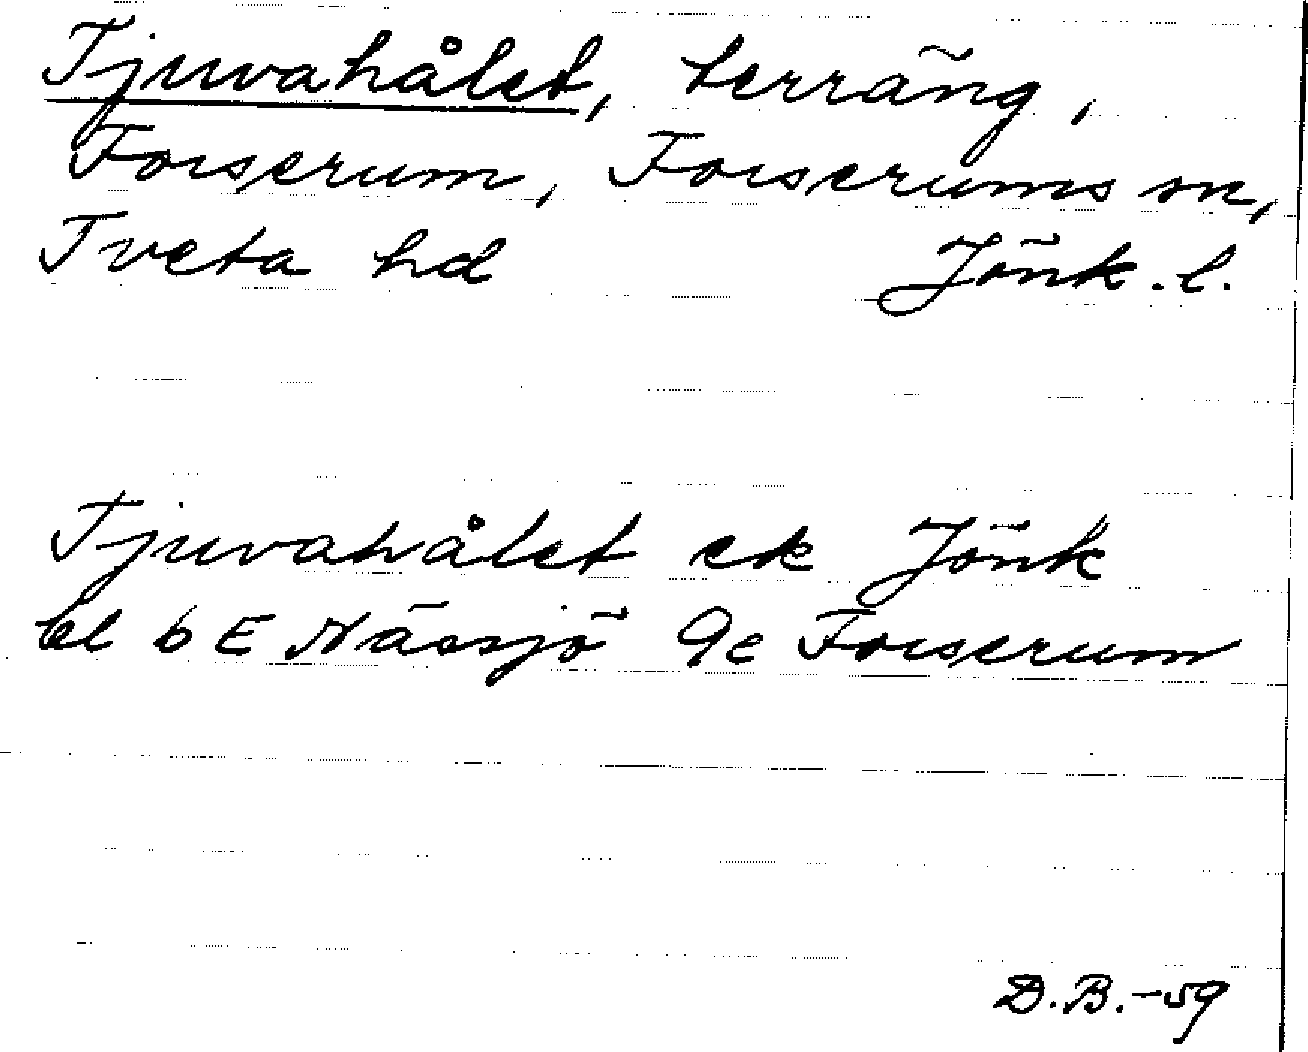 Tjuvahålet, terräng,
Forserum, Forserums sn,
Tveta hd Jönk. l.
Tjuvahålet ek Jönk
bl 6 E Nässjö 9e Forserum
D.B.-59